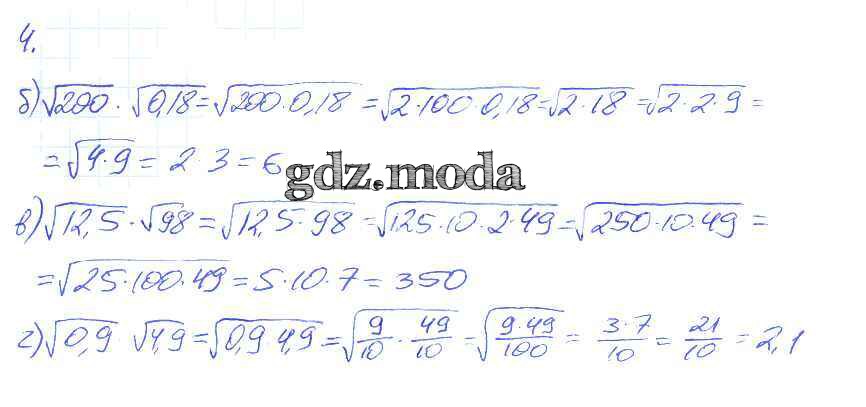 4.
б) √200 · √0,18 = √200·0,18 = √2·100·0,18 = √2·18 = √2·2·9 =
= √4·9 = 2·3 = 6
gdz.moda
в) √12,5 · √98 = √12,5·98 = √125·10·2·49 = √250·10·49 =
= √25·100·49 = 5·10·7 = 350
г) √0,9 · √4,9 = √0,9·4,9 = √9/10 · 49/10 = √9·49/100 = 3·7/10 = 21/10 = 2,1